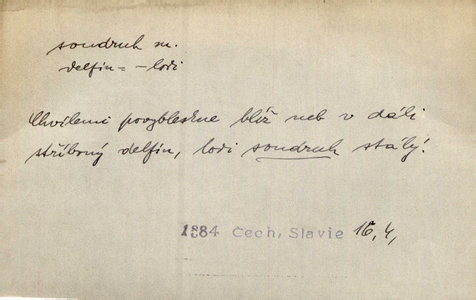 soudruh m.
delfín = - lodi
Chvílemi pozableskne blíž neb v dáli
stříbrný delfín, lodi soudruh stálý.
1884 Čech, Slavie 16, 4,